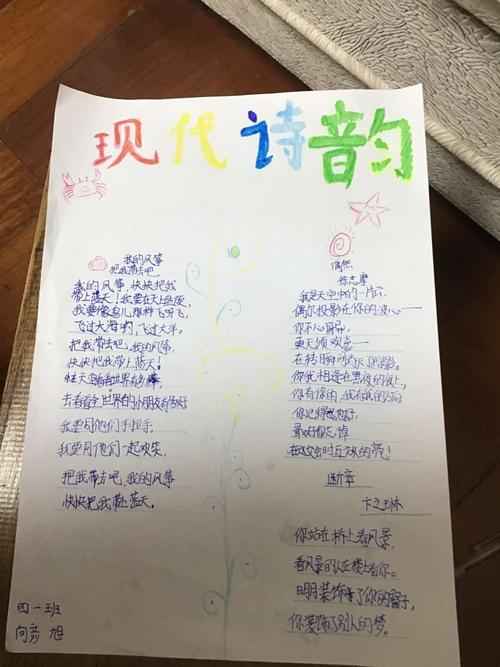 现代诗韵
我的风筝
把我带去吧
我的风筝,快快把我
带上蓝天!我要在天上
我要像鸟儿那样飞呀飞,
飞过大海,飞过大洋。
把我带去吧,我的风筝,
快快把我带上蓝天!
看看世界有多
去看看全世界的小朋友
我要同他们手拉手,
我要同他们一起欢笑,
把我带去吧,我的风筝
快快把我带上蓝天。
四一班
向彦旭
偶然
徐志摩
我是天空中的一片云,
偶尔投影在你的波心——
你不必讶异,
更无须欢喜——
在转瞬间
你我相逢在黑夜的海上,
你有你的,我有我的,方向
你记得也好
最好你忘掉
在交会时互放的光亮!
断章
卞之琳
你站在桥上看风景,
看风景的人在楼上看你。
明月装饰了你的窗子,
你装饰了别人的梦。